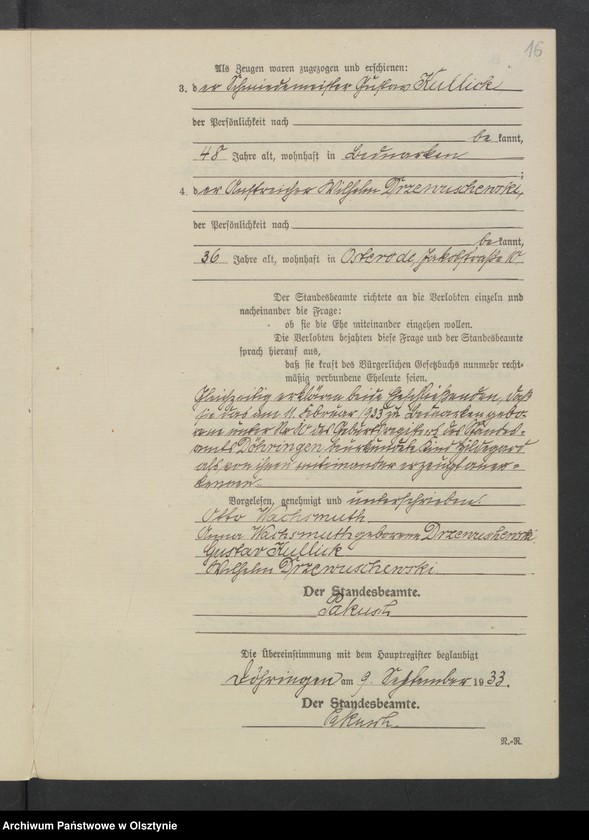 16
Als Zeugen waren zugezogen und erschienen:
3. der Schmiedemeister Gustav Kullick
der Persönlichkeit nach
bekannt,
48 Jahre alt, wohnhaft in Bednarken
;
4. der Anstreicher Wilhelm Drzewuschewski,
der Persönlichkeit nach
bekannt,
36 Jahre alt, wohnhaft in Osterode, Jakobstraße 10
Der Standesbeamte richtete an die Verlobten einzeln und
nacheinander die Frage:
ob sie die Ehe miteinander eingehen wollen.
Die Verlobten bejahten diese Frage und der Standesbeamte
sprach hierauf aus,
daß sie kraft des Bürgerlichen Gesetzbuchs nunmehr recht-
mäßig verbundene Eheleute seien.
Gleichzeitig erklären beide Eheschließenden, daß
sie das am 11. Februar 1933 zu Bednarken gebo-
rene unter Nr. 10 des Geburtsregisters des Standes-
amts Döhringen beurkundete Kind Hildegard
als von ihnen miteinander erzeugt aner-
kennen.
Vorgelesen, genehmigt und unterschrieben.
Otto Wachsmuth
Anna Wachsmuth geborene Drzewuschewski.
Gustav Kullick
Wilhelm Drzewuschewski.
Der Standesbeamte.
Sakusch
Die Übereinstimmung mit dem Hauptregister beglaubigt
Döhringen am 9. September 1933.
Der Standesbeamte.
Sakusch.
N.-R.
Archiwum Państwowe w Olsztynie